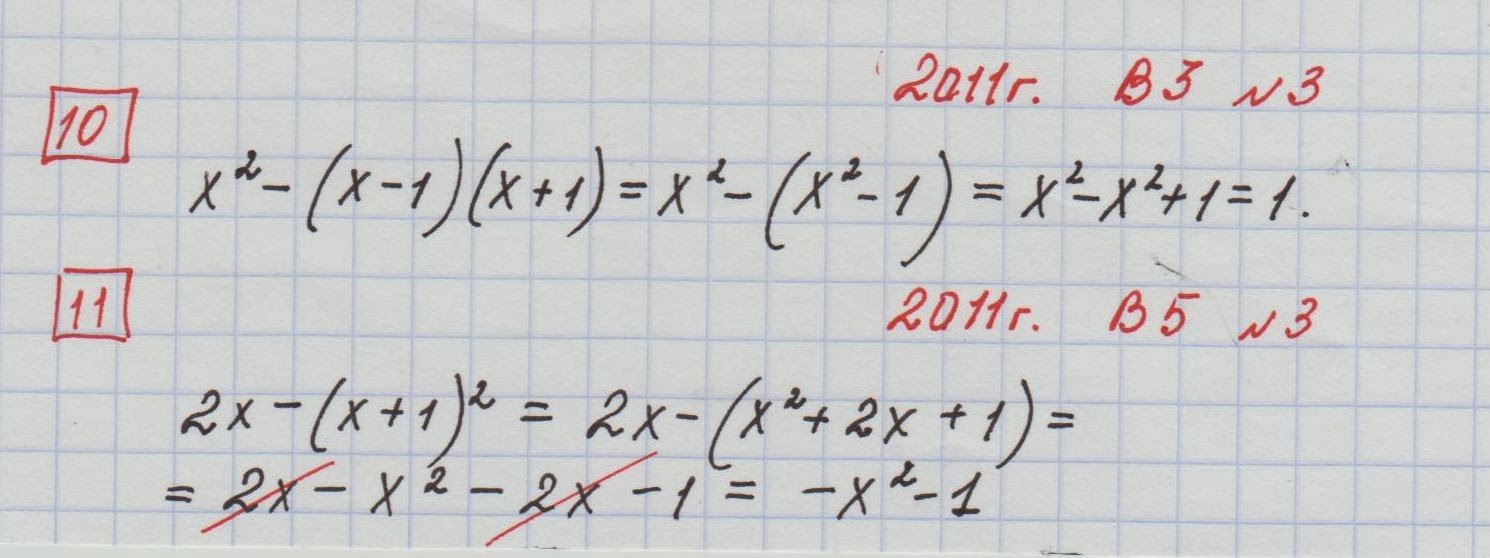 2011г. В3 №3
10
x² - (x - 1)(x + 1) = x² - (x² - 1) = x² - x² + 1 = 1.
2011г. В5 №3
11
2x - (x + 1)² = 2x - (x² + 2x + 1) =
= 2x - x² - 2x - 1 = -x² - 1